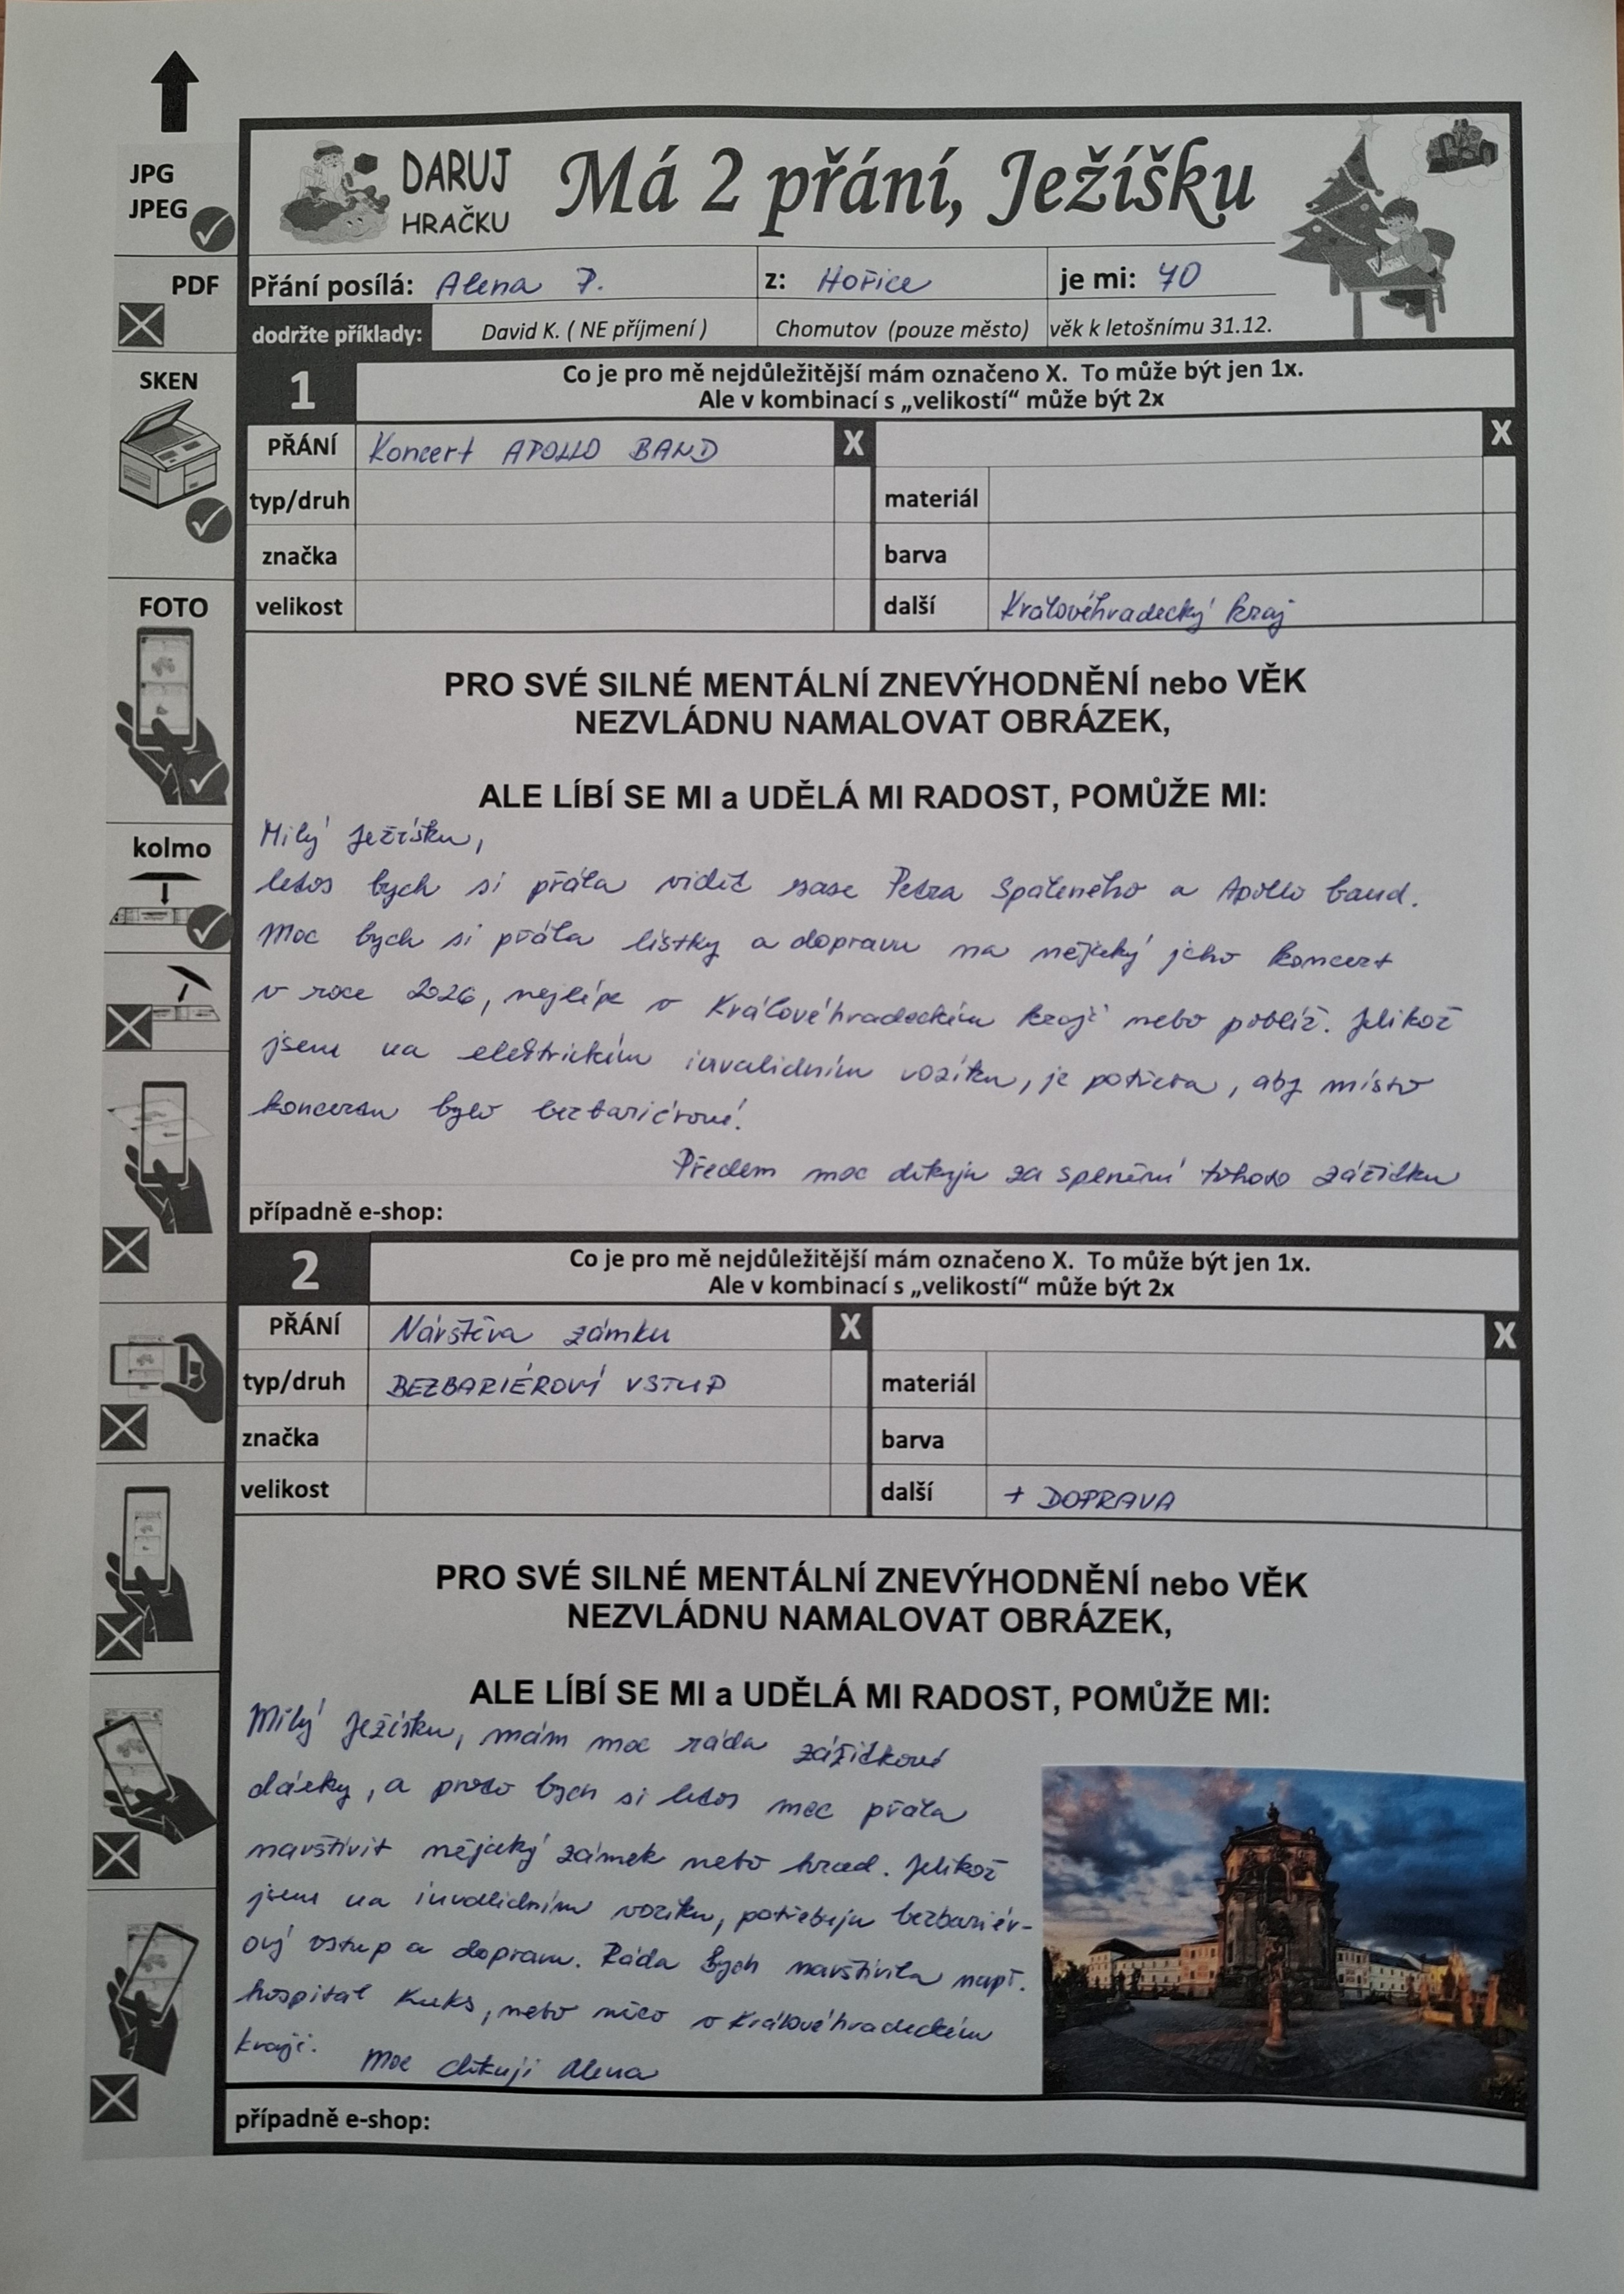 JPG
JPEG
PDF
SKEN
FOTO
kolmo
DARUJ
HRAČKU
Má 2 přání, Ježíšku
Přání posílá: Alena P. z: Hořice je mi: 70
dodržte příklady: David K. ( NE příjmení ) Chomutov (pouze město) věk k letošnímu 31.12.
1
Co je pro mě nejdůležitější mám označeno X. To může být jen 1x.
Ale v kombinací s „velikostí“ může být 2x
PŘÁNÍ Koncert APOLLO BAND X X
typ/druh materiál
značka barva
velikost další Královéhradecký kraj
PRO SVÉ SILNÉ MENTÁLNÍ ZNEVÝHODNĚNÍ nebo VĚK
NEZVLÁDNU NAMALOVAT OBRÁZEK,
ALE LÍBÍ SE MI a UDĚLÁ MI RADOST, POMŮŽE MI:
Milý Ježíšku,
letos bych si přála vidět zase Petra Spáleného a Apollo band.
Moc bych si přála lístky a dopravu na nějaký jeho koncert
v roce 2026, nejlépe v Královéhradeckém kraji nebo poblíž. Jelikož
jsem na elektrickém invalidním vozíku, je potřeba, aby místo
koncertu bylo bezbariérové!
Předem moc děkuju za splnění tohoto zážitku
případně e-shop:
2
Co je pro mě nejdůležitější mám označeno X. To může být jen 1x.
Ale v kombinací s „velikostí“ může být 2x
PŘÁNÍ Návštěva zámku X X
typ/druh BEZBARIÉROVÝ VSTUP materiál
značka barva
velikost další + DOPRAVA
PRO SVÉ SILNÉ MENTÁLNÍ ZNEVÝHODNĚNÍ nebo VĚK
NEZVLÁDNU NAMALOVAT OBRÁZEK,
ALE LÍBÍ SE MI a UDĚLÁ MI RADOST, POMŮŽE MI:
Milý Ježíšku, mám moc ráda zážitkové
dárky, a proto bych si letos moc přála
navštívit nějaký zámek nebo hrad. Jelikož
jsem na invalidním vozíku, potřebuju bezbariér-
ový vstup a dopravu. Ráda bych navštívila např.
hospital Kuks, nebo něco v Královéhradeckém
kraji. Moc děkuji Alena
případně e-shop: